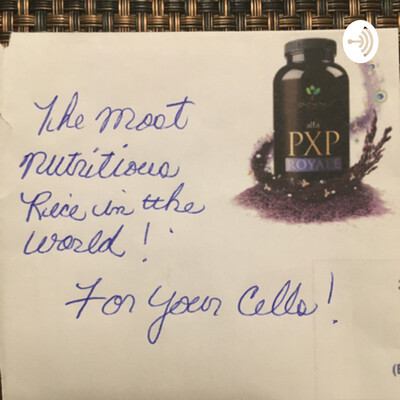 The most
nutritious
Rice in the
World!
For Your Cells!
PXP
ROYALE